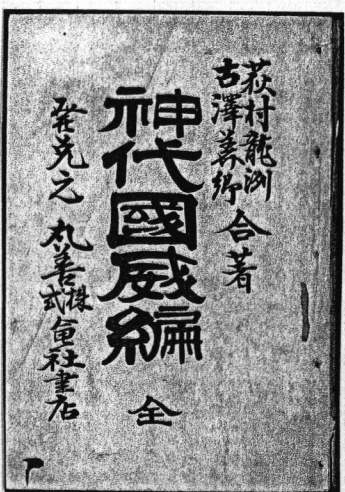 荻村龍洲
古澤善郷 合著
神代國威編 全
發兌元 丸善株式會社書店